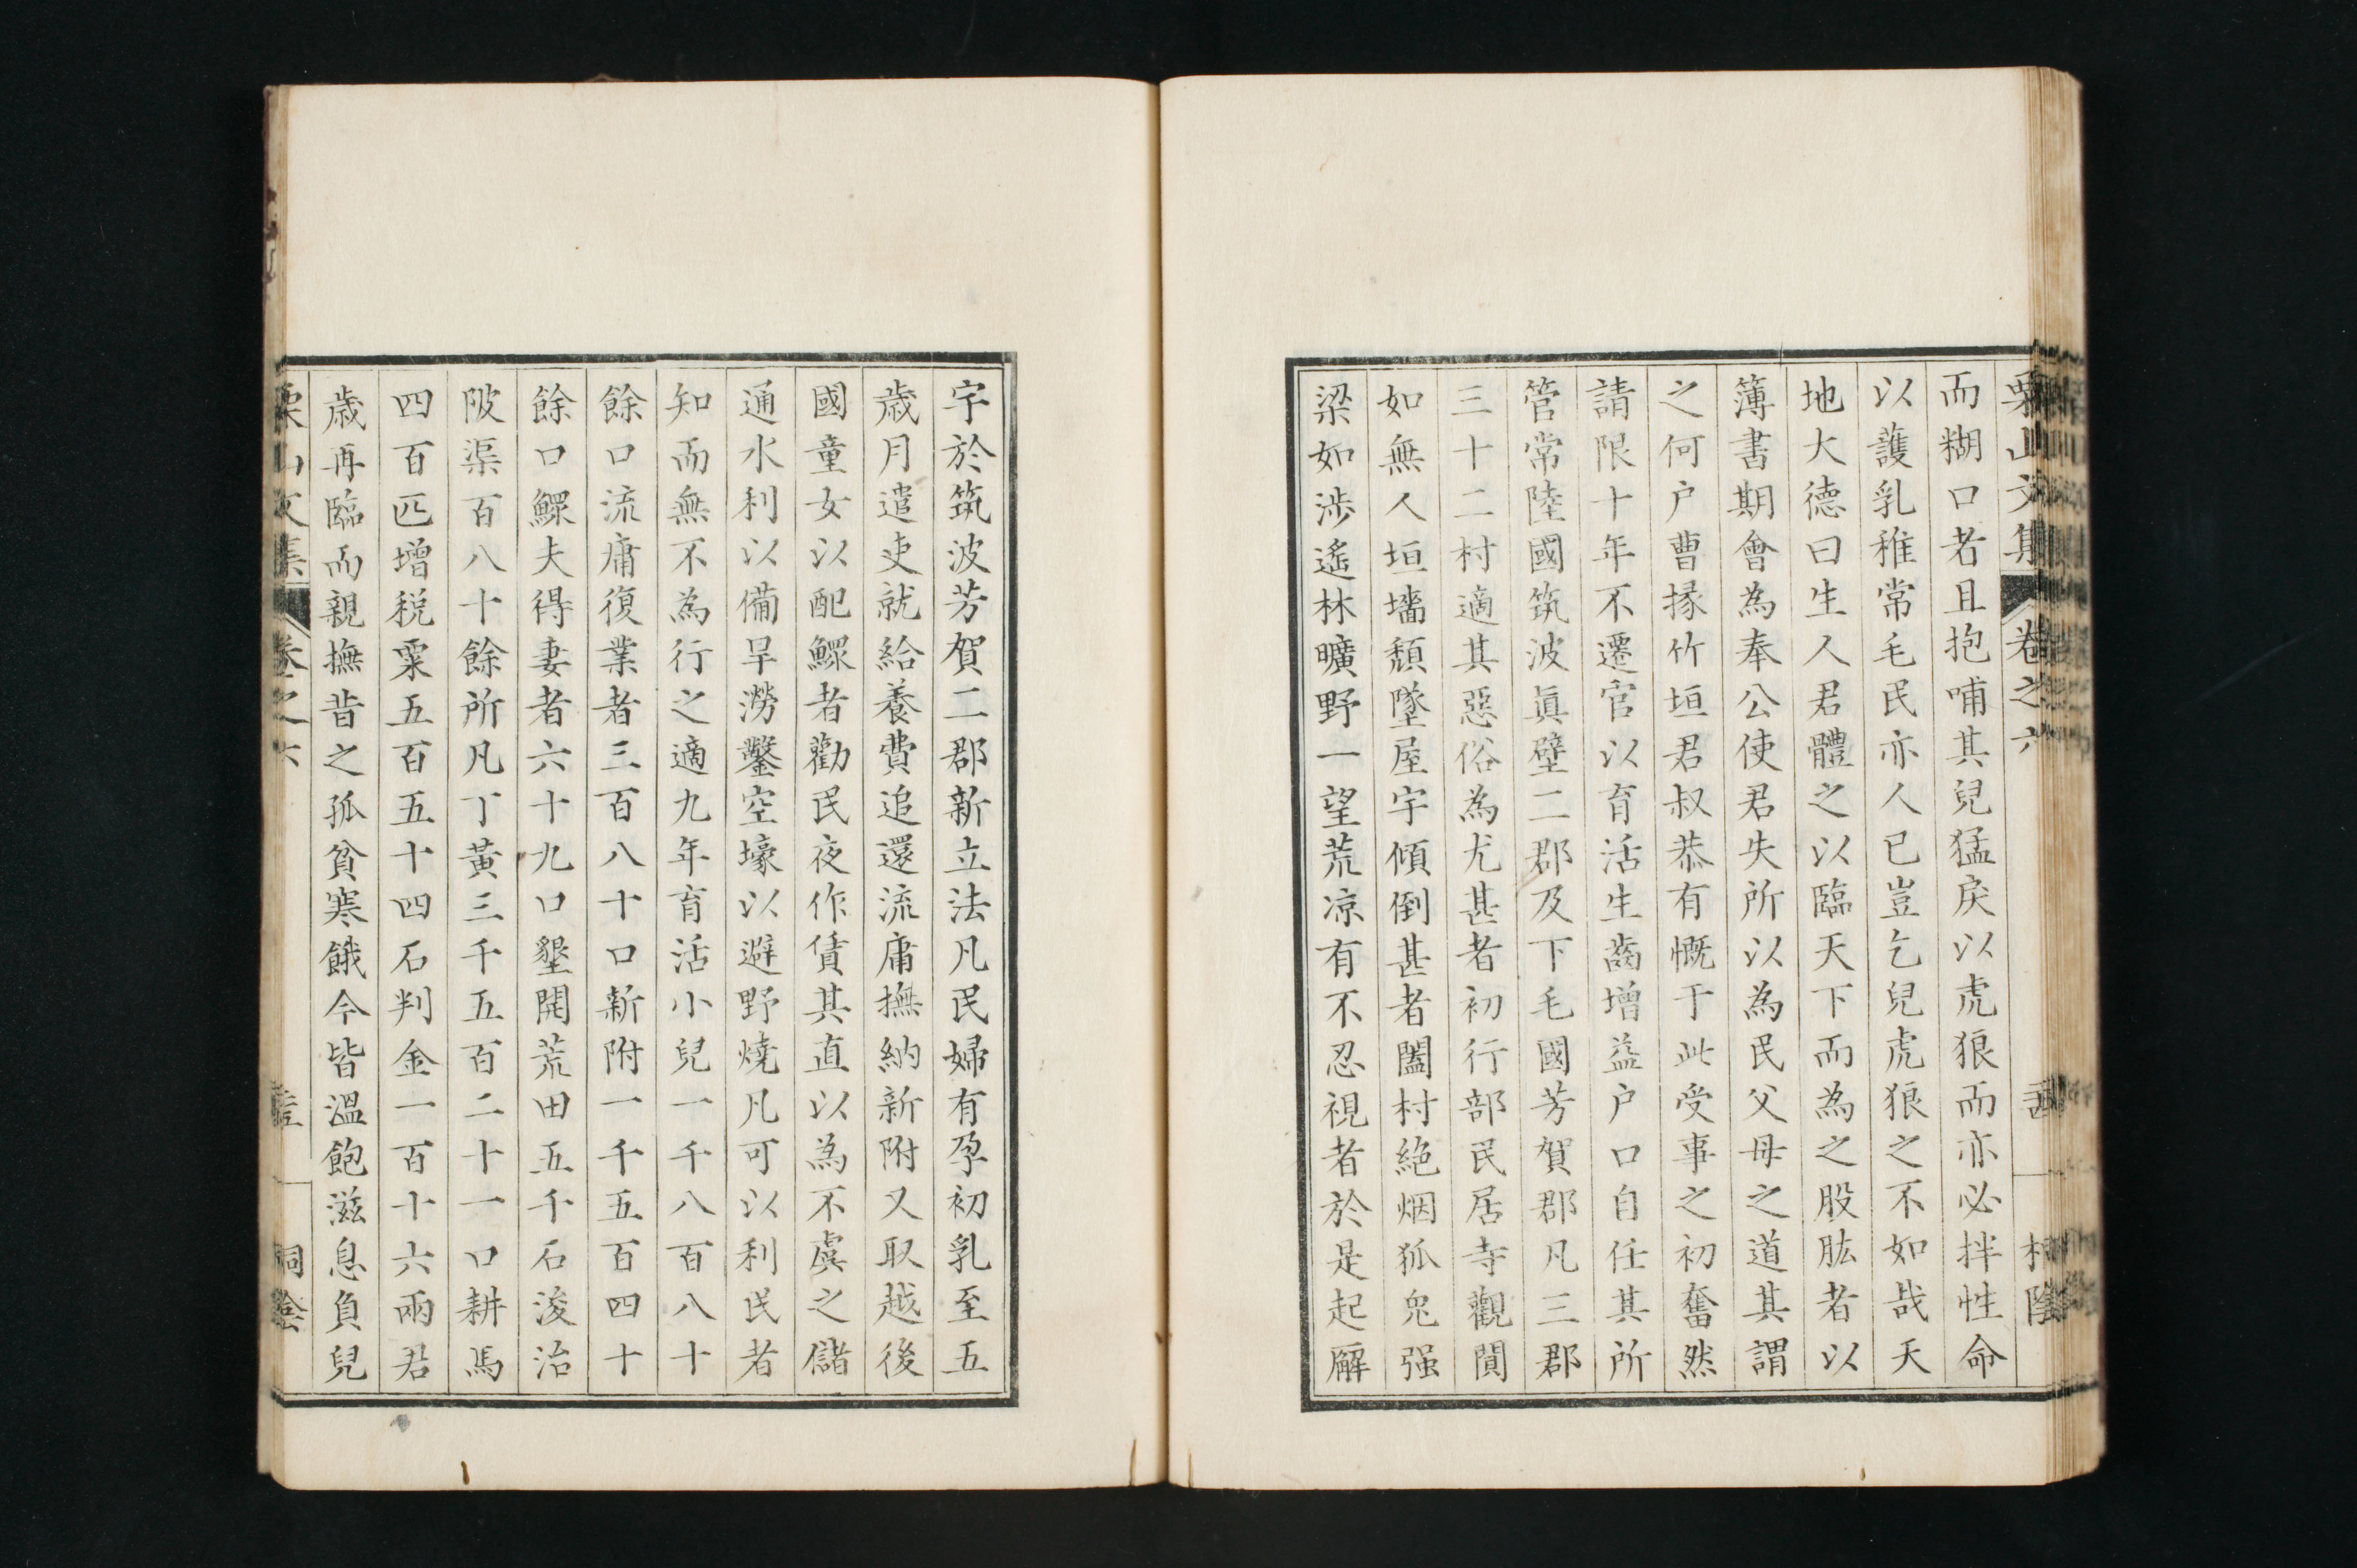 栗山文集 卷之六
而糊口者且抱哺其兒猛戾以虎狼而亦必拌性命
以護乳稚常毛民亦人已豈乞兒虎狼之不如哉天
地大德曰生人君體之以臨天下而為之股肱者以
簿書期會為奉公使君失所以為民父母之道其謂
之何户曹掾竹垣君叔恭有慨于此受事之初奮然
請限十年不遷官以育活生齒增益户口自任其所
管常陸國筑波眞壁二郡及下毛國芳賀郡凡三郡
三十二村適其惡俗為尤甚者初行部民居寺觀閴
如無人垣墻頽墜屋宇傾倒甚者闔村絶烟狐兔强
梁如涉遙林曠野一望荒凉有不忍視者於是起廨
宇於筑波芳賀二郡新立法凡民婦有孕初乳至五
歲月遣吏就給養費追還流庸撫納新附又取越後
國童女以配鰥者勸民夜作賃其直以為不虞之儲
通水利以備旱澇鑿空壕以避野燒凡可以利民者
知而無不為行之適九年育活小兒一千八百八十
餘口流庸復業者三百八十口新附一千五百四十
餘口鰥夫得妻者六十九口墾開荒田五千石浚治
陂渠百八十餘所凡丁黃三千五百二十一口耕馬
四百匹增税粟五百五十四石判金一百十六兩君
歲再臨而親撫昔之孤貧寒餓今皆溫飽滋息負兒
栗山文集 卷之六